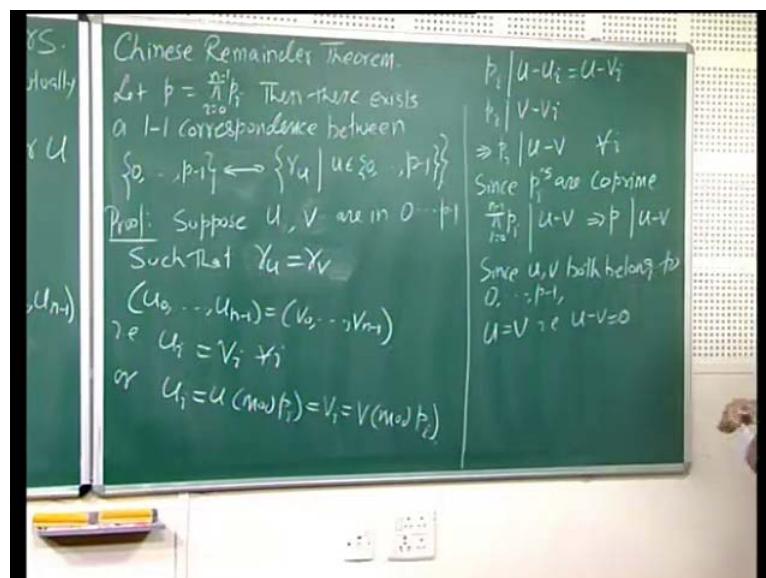 rs.
r U
,Un-1)
Chinese Remainder Theorem.
Let p = ∏_{i=0}^{n-1} p_i Then there exists
a 1-1 correspondence between
{0, .., p-1} ⟷ {γ_u | u ∈ {0, .., p-1}}
Proof: Suppose u, v are in 0...p-1
Such that γ_u = γ_v
(u_0, ..., u_{n-1}) = (v_0, ..., v_{n-1})
ie u_i = v_i ∀i
or u_i = u (mod p_i) = v_i = v (mod p_i)
p_i | u-u_i = u-v_i
p_i | v-v_i
⇒ p_i | u-v ∀i
Since p_i's are coprime
∏_{i=0}^{n-1} p_i | u-v ⇒ p | u-v
Since u, v both belong to
0, .., p-1,
u=v ie u-v=0